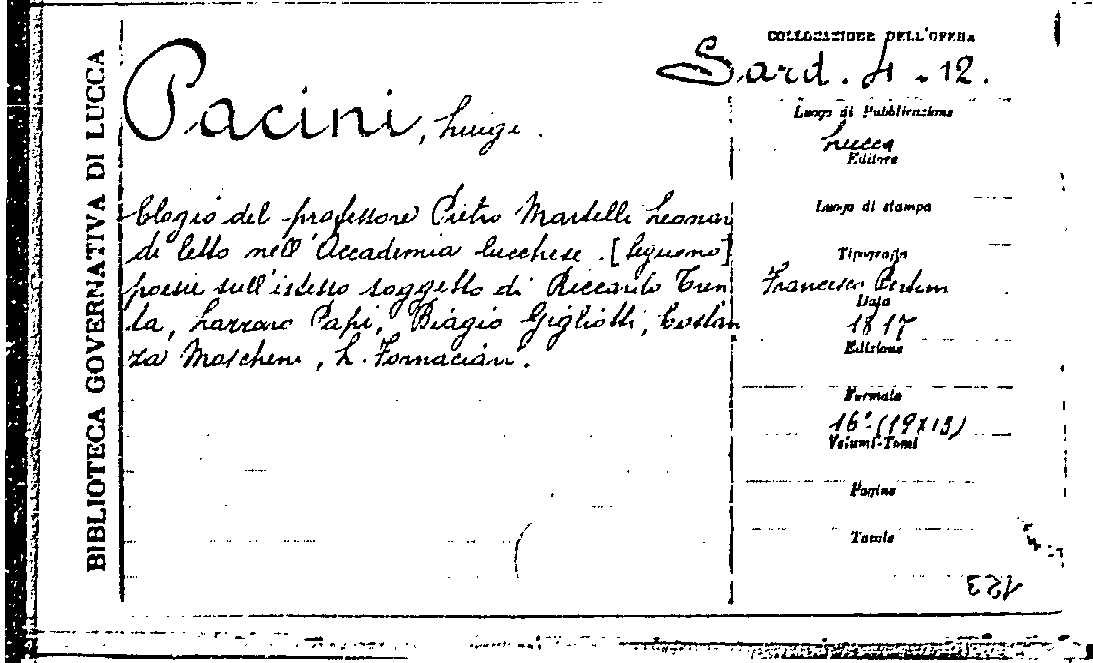 BIBLIOTECA GOVERNATIVA DI LUCCA
Pacini, Luigi.
Elogio del professore Pietro Martelli Leonar
di letto nell'Accademia lucchese. [Seguono]
poesie sull'istesso soggetto di Riccardo Tren
ta, Lazzaro Papi, Biagio Gigliotti, Costan
za Moscheni, L. Fornaciari.
COLLOCAZIONE DELL'OPERA
Sard. 4. 12.
Luogo di Pubblicazione
Lucca
Editore
Luogo di stampa
Tipografia
Francesco Bertini
Data
1817
Edizione
Formato
16° (19x13)
Volumi-Tomi
Pagine
Tavole
123